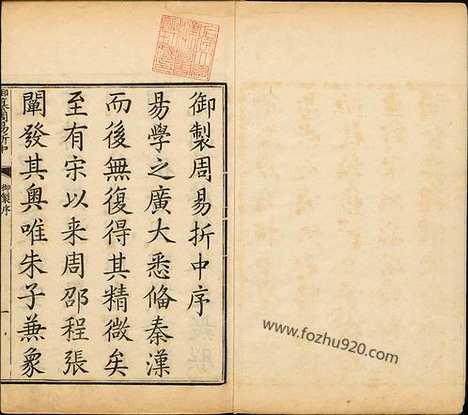 御製周易折中序
易學之廣大悉備秦漢
而後無復得其精微矣
至有宋以來周邵程張
闡發其奧唯朱子兼象
御纂周易折中
御製序
一
www.fozhu920.com